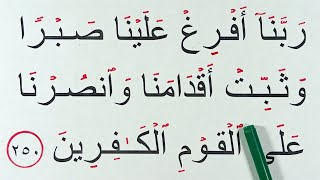 رَبَّنَآ أَفۡرِغۡ عَلَيۡنَا صَبۡرًا
وَثَبِّتۡ أَقۡدَامَنَا وَٱنصُرۡنَا
عَلَى ٱلۡقَوۡمِ ٱلۡكَـٰفِرِينَ ٢٥٠